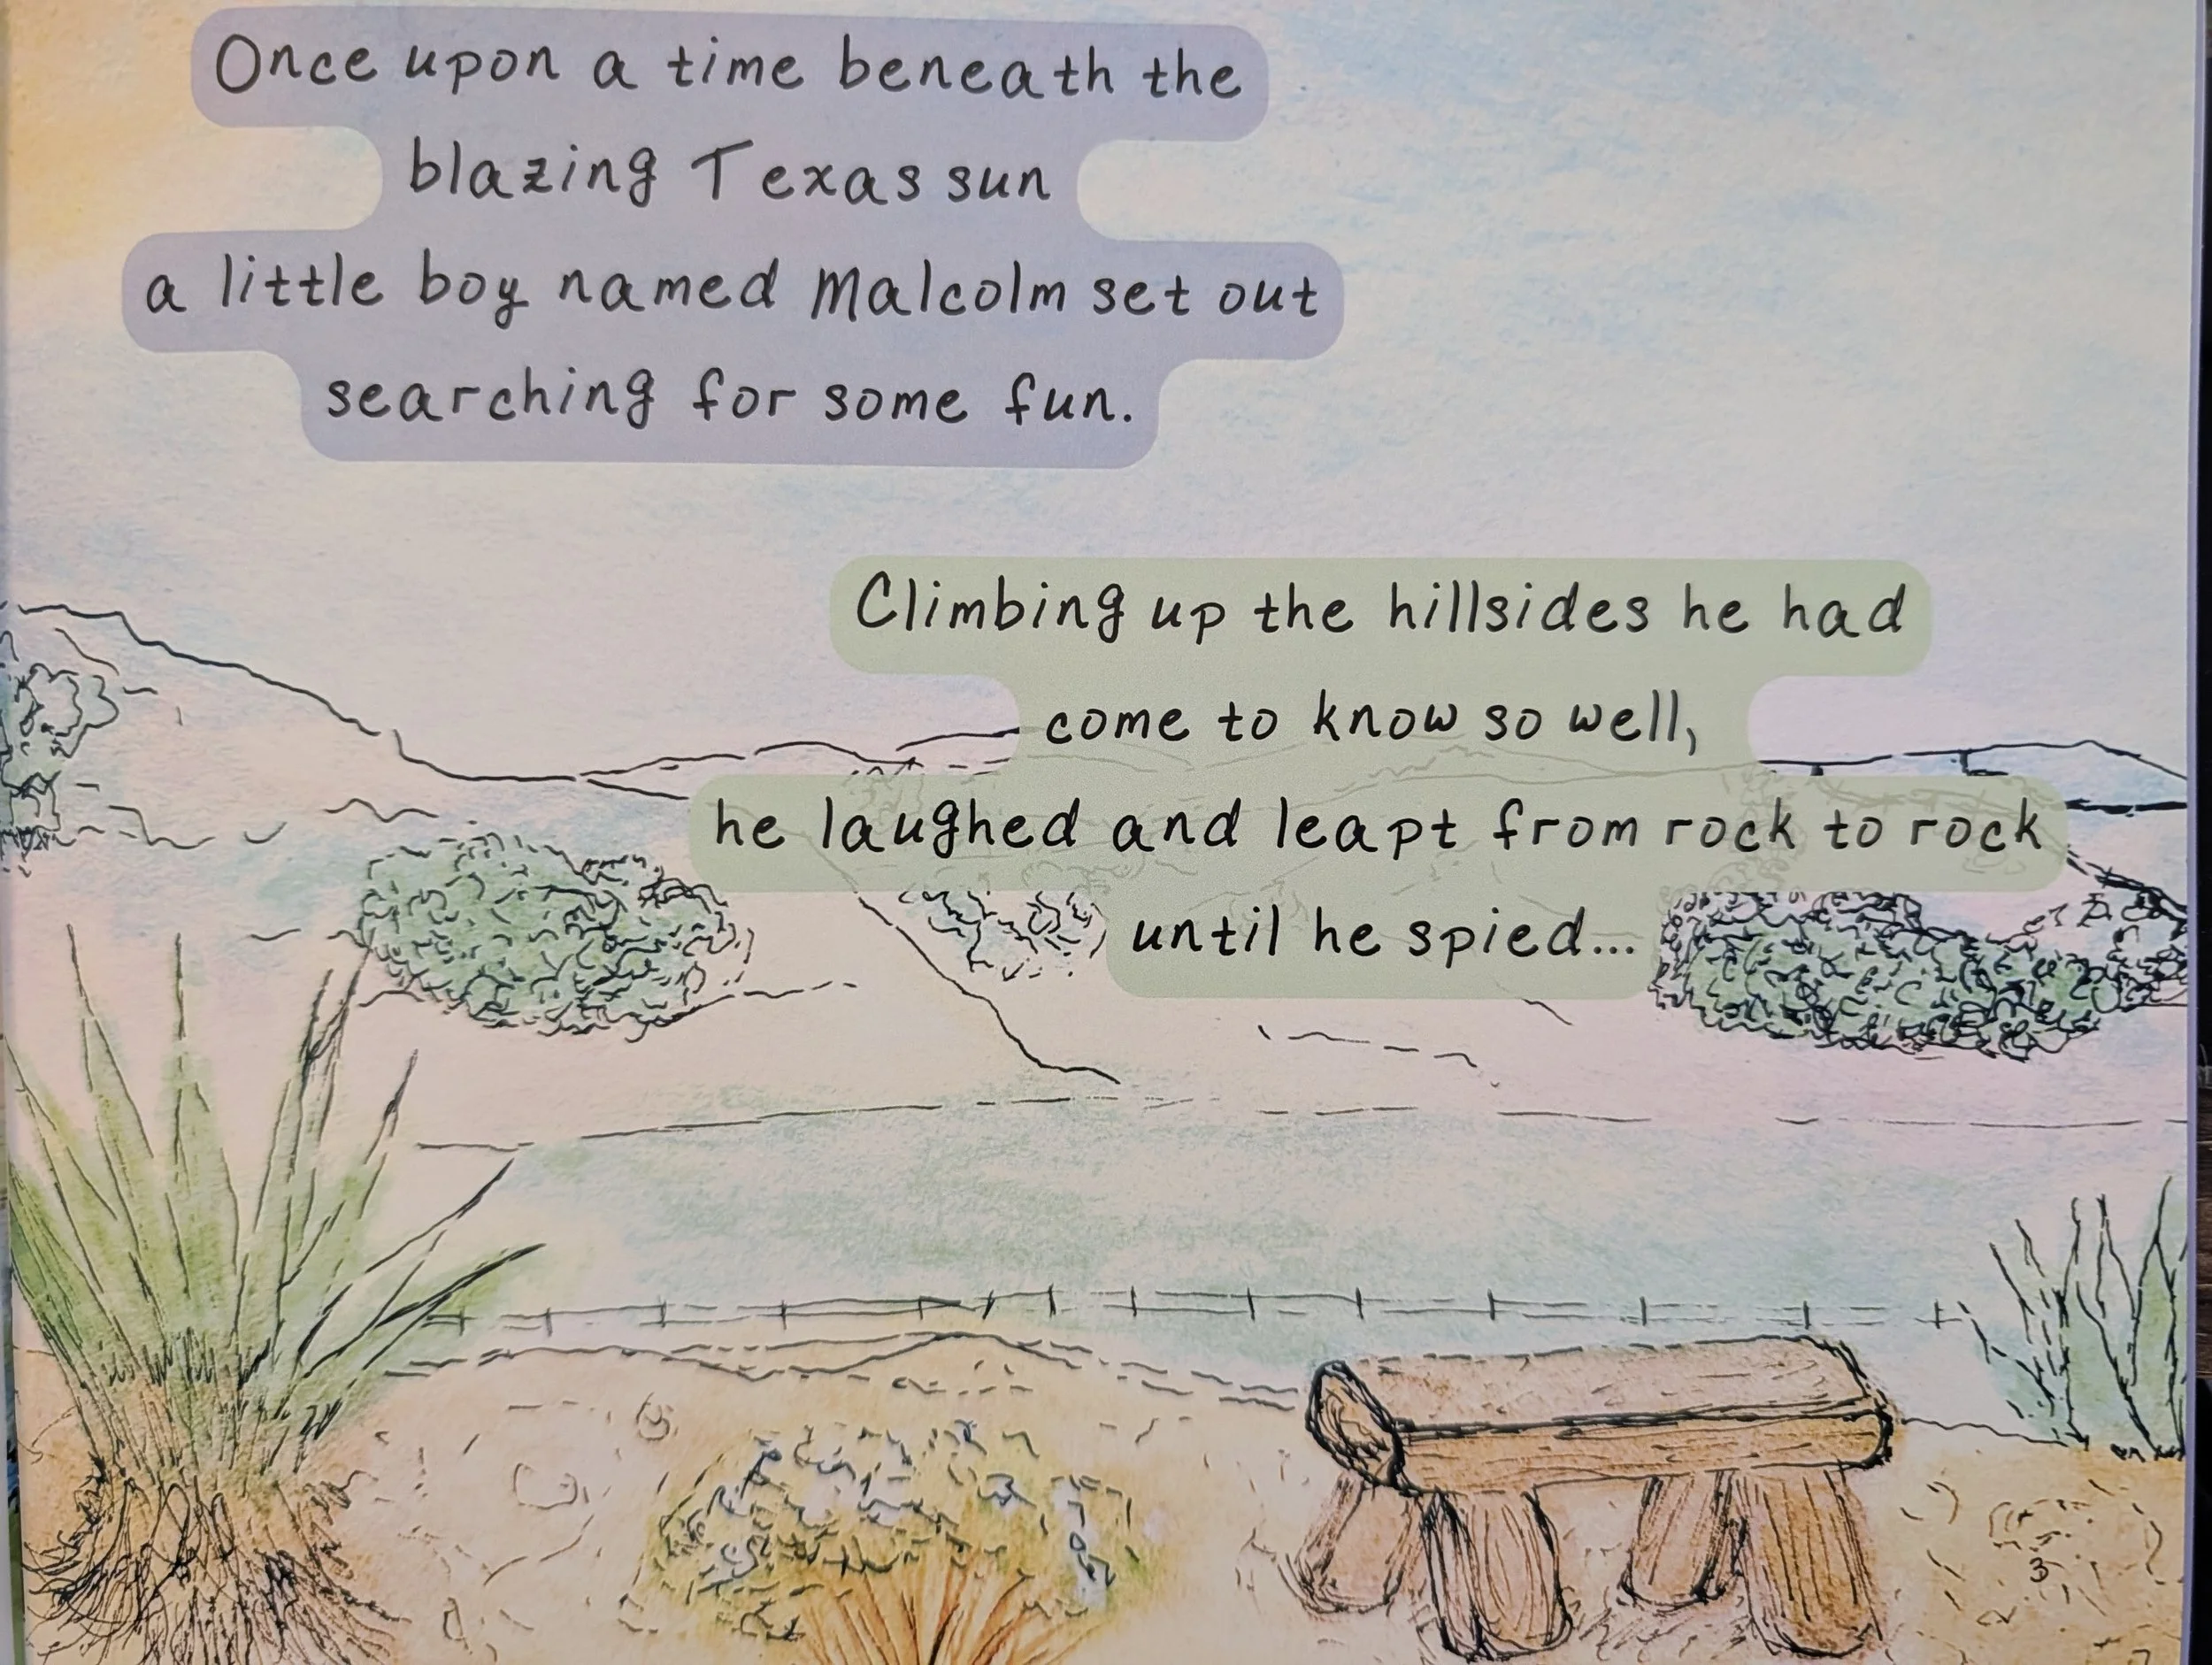 Once upon a time beneath the
blazing Texas sun
a little boy named Malcolm set out
searching for some fun.
Climbing up the hillsides he had
come to know so well,
he laughed and leapt from rock to rock
until he spied...
3